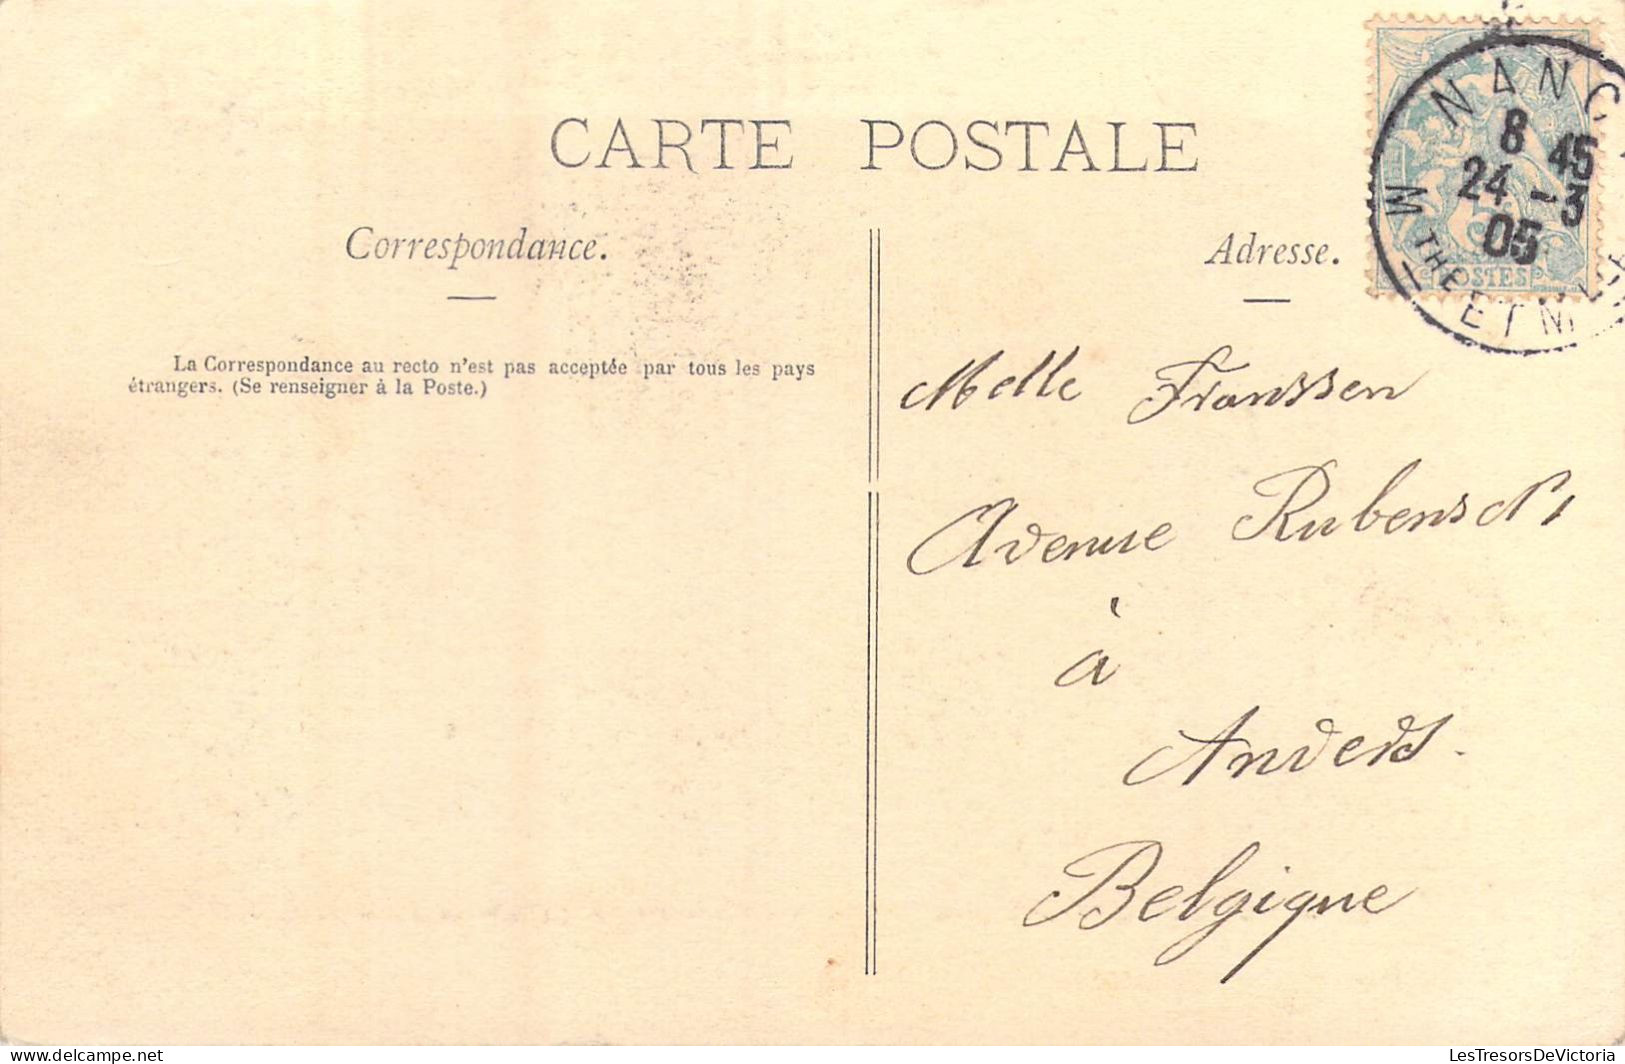 CARTE POSTALE
Correspondance.
Adresse.
La Correspondance au recto n'est pas acceptée par tous les pays
étrangers. (Se renseigner à la Poste.)
NANC
8 45
24 -3
05
M THE ET M
POSTES
Melle Franssen
Avenue Rubens
à
Anvers.
Belgique
LesTresorsDeVictoria